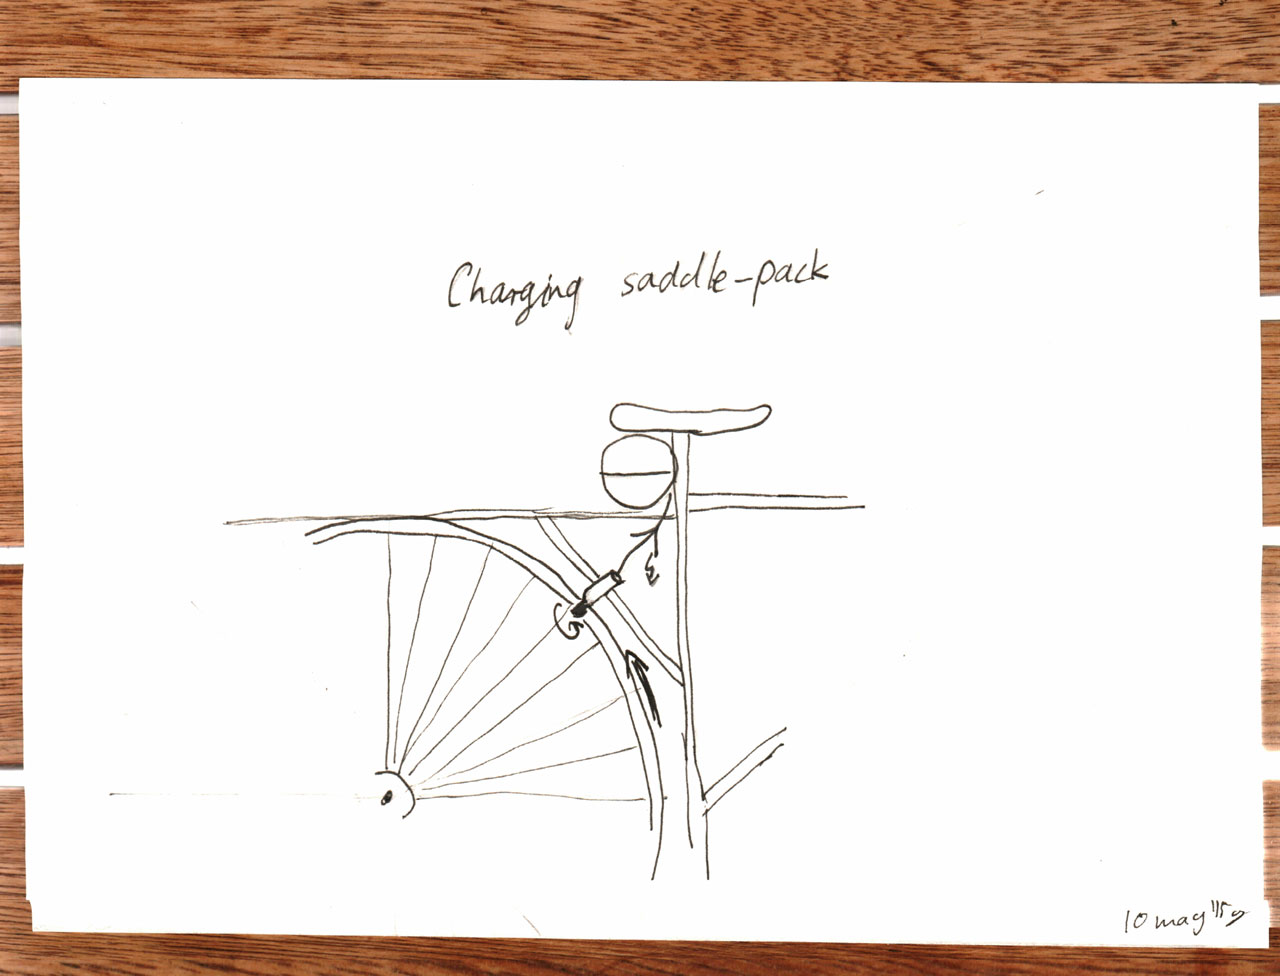 Charging saddle-pack
10 may '15